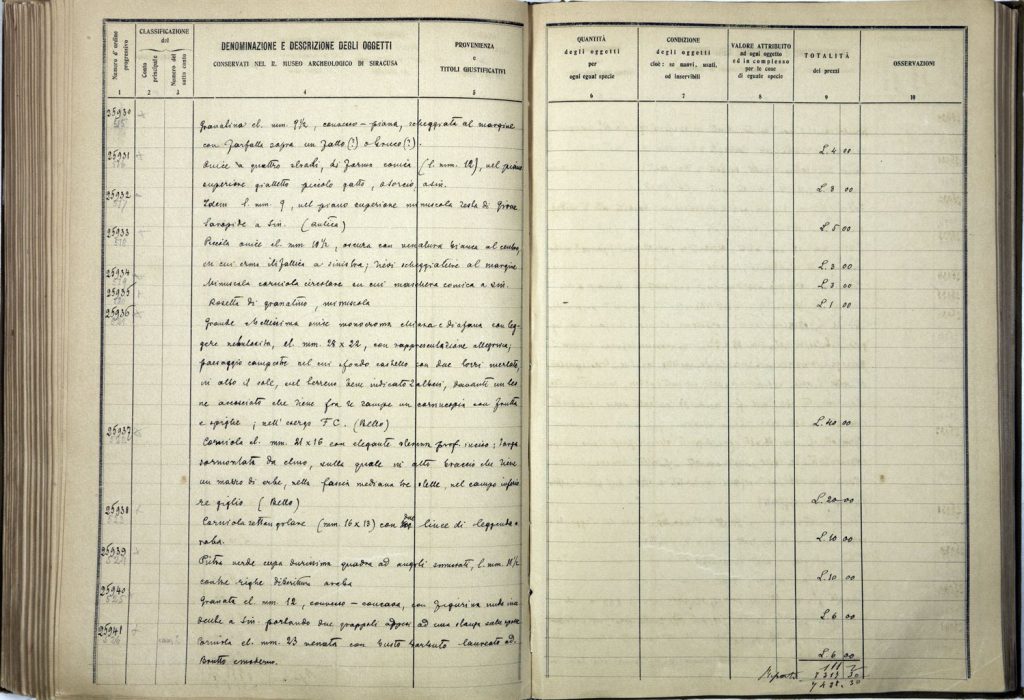 Numero d'ordine progressivo
CLASSIFICAZIONE del
Conto principale
Numero del sotto conto
DENOMINAZIONE E DESCRIZIONE DEGLI OGGETTI
CONSERVATI NEL R. MUSEO ARCHEOLOGICO DI SIRACUSA
PROVENIENZA
e
TITOLI GIUSTIFICATIVI
QUANTITÀ
degli oggetti
per
ogni egual specie
CONDIZIONE
degli oggetti
cioè: se nuovi, usati,
od inservibili
VALORE ATTRIBUITO
ad ogni oggetto
ed in complesso
per le cose
di eguale specie
TOTALITÀ
dei prezzi
OSSERVAZIONI
1 2 3 4 5 6 7 8 9 10
25930
Granatina el. mm. 9½, convesso-piana, scheggiata al margine
con farfalla sopra un (?) o (?). L. 4 00
25931
Onice a quattro strati, di forma conica (l. mm. 12), nel piano
superiore gialletto piccolo gatto, a sin. L. 3 00
25932
Idem l. mm 9, nel piano superiore minuscola testa di Giove
Sarapide a sin. (antica) L. 5 00
25933
Piccola onice el. mm 10½, oscura con venatura bianca al centro,
in cui erma itifallica a sinistra; lievi scheggiature al margine. L. 3 00
25934
Minuscola corniola circolare en cui maschera comica a sin. L. 3 00
25935
Rosetta di granatino, minuscola L. 1 00
25936
Grande bellissima onice monocroma chiara e diafana con leg-
gere nebulosità, el. mm. 28 x 22, con rappresentazione allegorica;
paesaggio campestre nel cui sfondo castello con due torri merlate,
in alto il sole, nel terreno bene indicato 2 alberi, davanti un leo
ne accosciato che tiene fra le zampe un cornucopia con frutta
e spighe; nell'esergo F. C. (Bello) L. 40 00
25937
Corniola el. mm. 21 x 16 con elegante stemma prof. inciso; targa
sormontata da elmo, sulla quale in alto braccio che tiene
un mazzo di erbe, nella fascia mediana tre stelle, nel campo inferio
re giglio (Bello) L. 20 00
25938
Corniola rettangolare (mm. 16 x 13) con due linee di leggenda a
raba. L. 10 00
25939
Pietra verde cupa durissima quadra ad angoli smussati, l. mm. 11½
con tre righe di scrittura araba L. 10 00
25940
Granata el. mm. 12, convesso-concava, con figurina nuda in a
a sin. portando due grappoli ad una L. 6 00
25941
Corniola el. mm. 23 venata con busto barbuto laureato ad.
Brutto e moderno. L. 6 00
111
Riporto 7313 30
7428.30